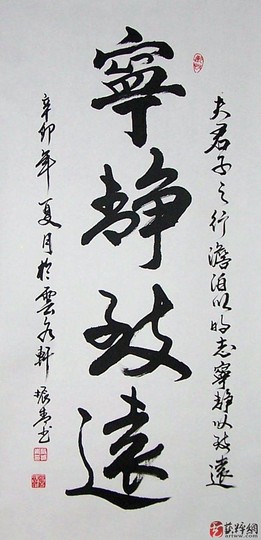 夫君子之行澹泊以明志寧靜以致遠
寧靜致遠
辛卯年夏月於雲軒振书